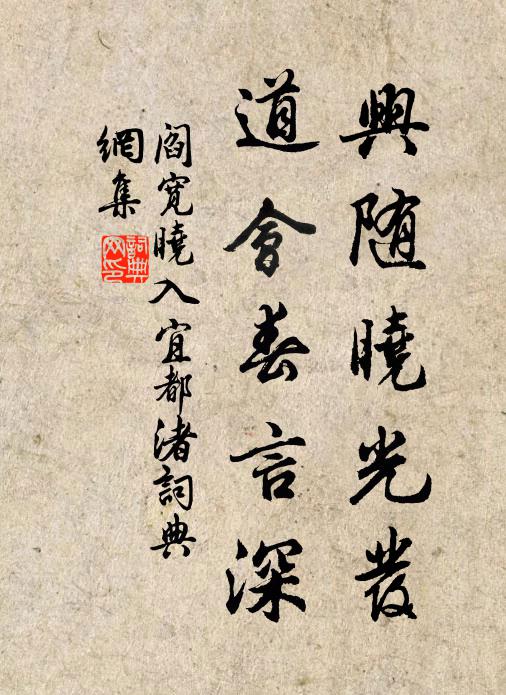 興随曉光發
道會春言深
閻寬曉入宜都渚詞典
網集
詞典
网印